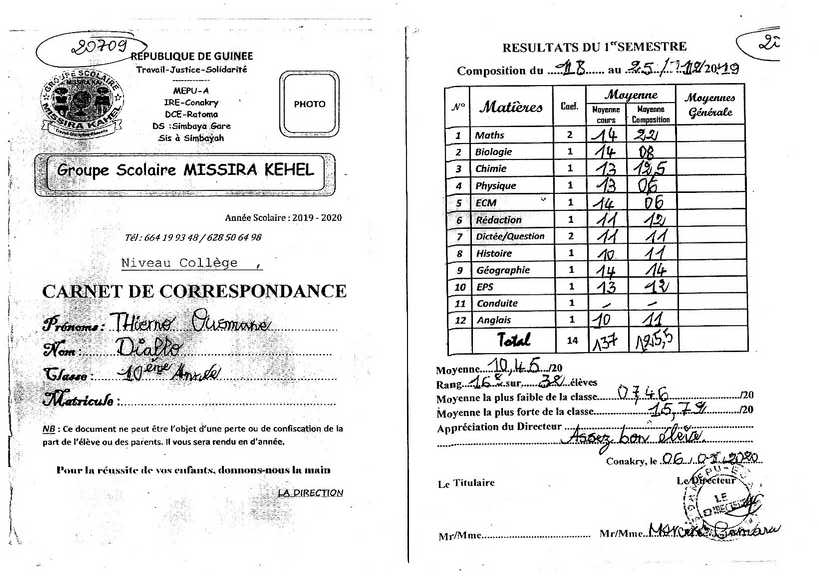 20709
REPUBLIQUE DE GUINEE
Travail-Justice-Solidarité
MEPU-A
IRE-Conakry
DCE-Ratoma
DS :Simbaya Gare
Sis à Simbayah
GROUPE SCOLAIRE
MISSIRA KEHEL
PHOTO
Groupe Scolaire MISSIRA KEHEL
Année Scolaire : 2019 - 2020
Tél : 664 19 93 48 / 628 50 64 98
Niveau Collège ,
CARNET DE CORRESPONDANCE
Prénoms : THierno Ousmane
Nom : Diallo
Classe : 10ème Année
Matricule :
NB : Ce document ne peut être l'objet d'une perte ou de confiscation de la
part de l'élève ou des parents. Il vous sera rendu en d'année.
Pour la réussite de vos enfants, donnons-nous la main
LA DIRECTION
RESULTATS DU 1er SEMESTRE
Composition du 18 au 25/12/2019
N° Matières Coef. Moyenne Moyennes Générale
Moyenne cours Moyenne Composition
1 Maths 2 14 22
2 Biologie 1 14 08
3 Chimie 1 13 12,5
4 Physique 1 13 06
5 ECM 1 14 06
6 Rédaction 1 11 12
7 Dictée/Question 2 11 11
8 Histoire 1 10 11
9 Géographie 1 14 14
10 EPS 1 13 12
11 Conduite 1 - -
12 Anglais 1 10 11
Total 14 137 125,5
Moyenne 10,45 /20
Rang 16e sur 38 élèves
Moyenne la plus faible de la classe 07,46 /20
Moyenne la plus forte de la classe 15,79 /20
Appréciation du Directeur
Assez bon élève.
Conakry, le 06 2020
Le Titulaire Le Directeur
LE DIRECTEUR
Mr/Mme Mr/Mme